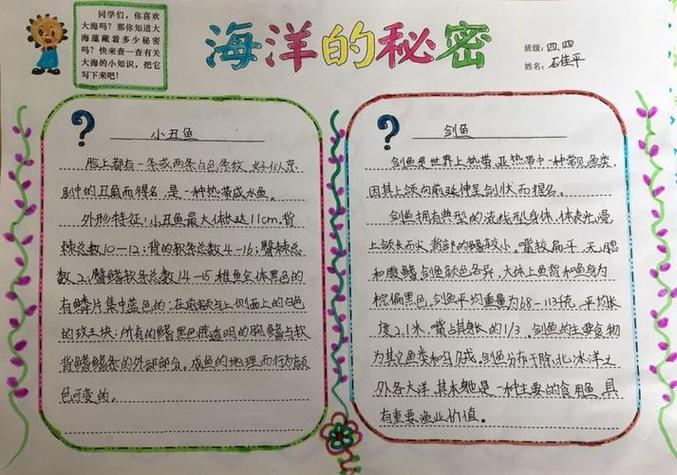 同学们，你喜欢
大海吗？那你知道大
海蕴藏着多少秘密
吗？快来查一查有关
大海的小知识，把它
写下来吧！
海洋的秘密
班级：四、四
姓名：石佳平
小丑鱼
脸上都有一条或两条白色条纹，好似京
剧中的丑角而得名，是一种热带咸水鱼。
外形特征：小丑鱼最大体长达11cm，背
棘总数10—12；背的软条总数14—16；臀棘总
数2；臀鳍软条总数14—15 雄鱼全体黑色的
有鳞片集中蓝色的；在前额与上侧面上的白色
的 块；所有的鳍黑色除透明的胸鳍与软
背鳍鳍条的外部部分，成鱼的地理而行为颜
色可变的。
剑鱼
剑鱼是世界上热带、亚热带中一种 鱼类，
因其上颌向前延伸呈剑状而得名。
剑鱼拥有典型的流线型身体，体表光滑
上颌长而尖，背部的鳍较小，嘴较扁平，无
和腹鳍，剑鱼颜色各异，大体上鱼背和鱼身为
棕偏黑色，剑鱼平均重量为68—113千克，平均长
度2.1米，嘴占其身长的1/3，剑鱼的主要食物
为其它鱼类和乌贼，剑鱼分布于除北冰洋之
外各大洋，其本 是一种主要的食用鱼，具
有重要渔业价值。